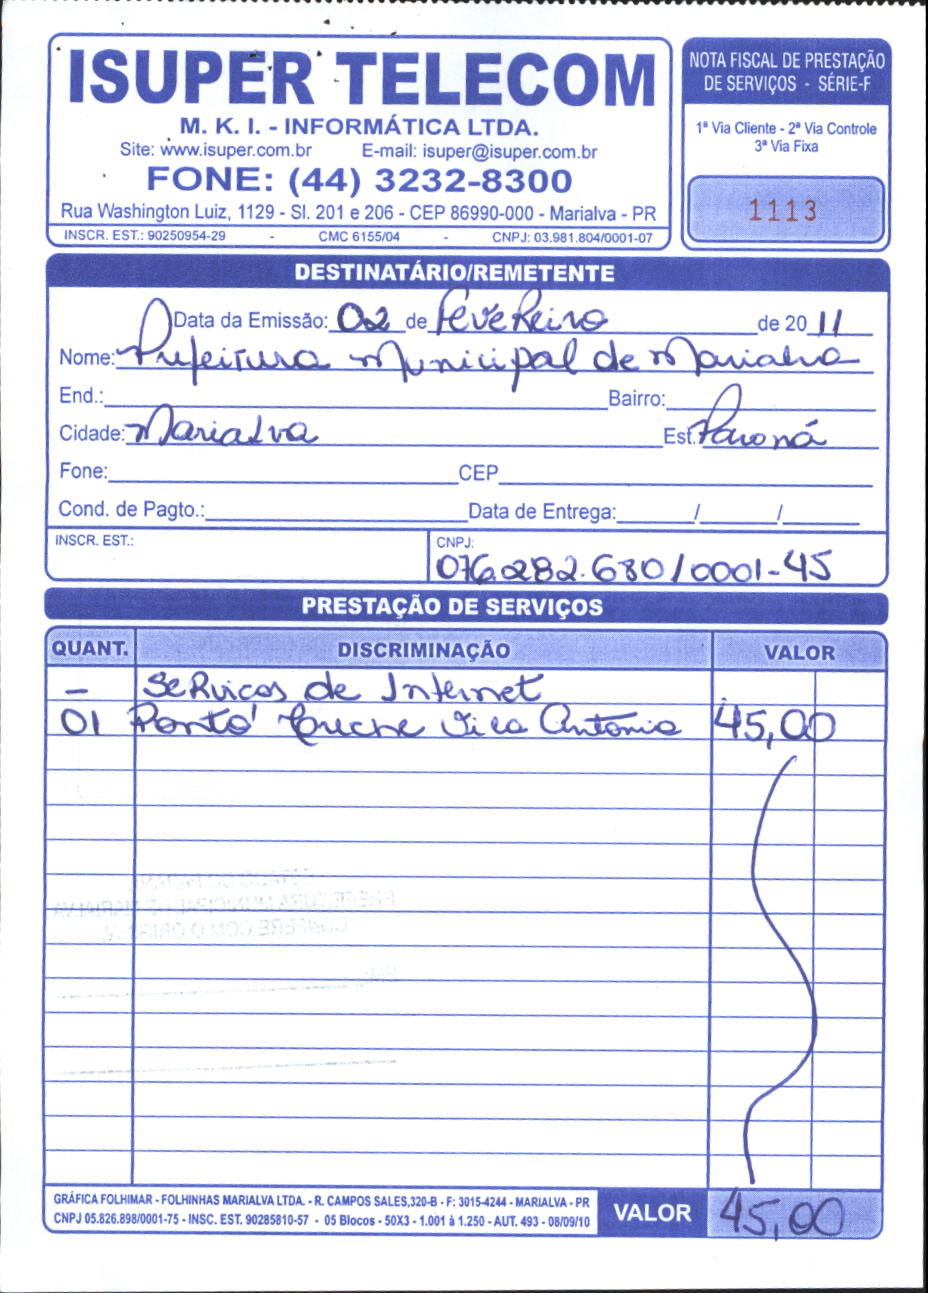 ISUPER TELECOM
M. K. I. - INFORMÁTICA LTDA.
Site: www.isuper.com.br E-mail: isuper@isuper.com.br
FONE: (44) 3232-8300
Rua Washington Luiz, 1129 - Sl. 201 e 206 - CEP 86990-000 - Marialva - PR
INSCR. EST.: 90250954-29 - CMC 6155/04 - CNPJ: 03.981.804/0001-07
NOTA FISCAL DE PRESTAÇÃO
DE SERVIÇOS - SÉRIE-F
1ª Via Cliente - 2ª Via Controle
3ª Via Fixa
1113
DESTINATÁRIO/REMETENTE
Data da Emissão: 02 de Fevereiro de 2011
Nome: Prefeitura Municipal de Marialva
End.: Bairro:
Cidade: Marialva Est. Paraná
Fone: CEP
Cond. de Pagto.: Data de Entrega: / /
INSCR. EST.: CNPJ:
076.282.680/0001-45
PRESTAÇÃO DE SERVIÇOS
QUANT. DISCRIMINAÇÃO VALOR
- Serviços de Internet
01 Ponto Creche Vila Antonio 45,00
ESTADO DO PARANÁ
PREFEITURA MUNICIPAL DE MARIALVA
CONFERE COM O ORIGINAL
EM:
GRÁFICA FOLHIMAR - FOLHINHAS MARIALVA LTDA. - R. CAMPOS SALES,320-B - F: 3015-4244 - MARIALVA - PR
CNPJ 05.826.898/0001-75 - INSC. EST. 90285810-57 - 05 Blocos - 50X3 - 1.001 à 1.250 - AUT. 493 - 08/09/10
VALOR 45,00